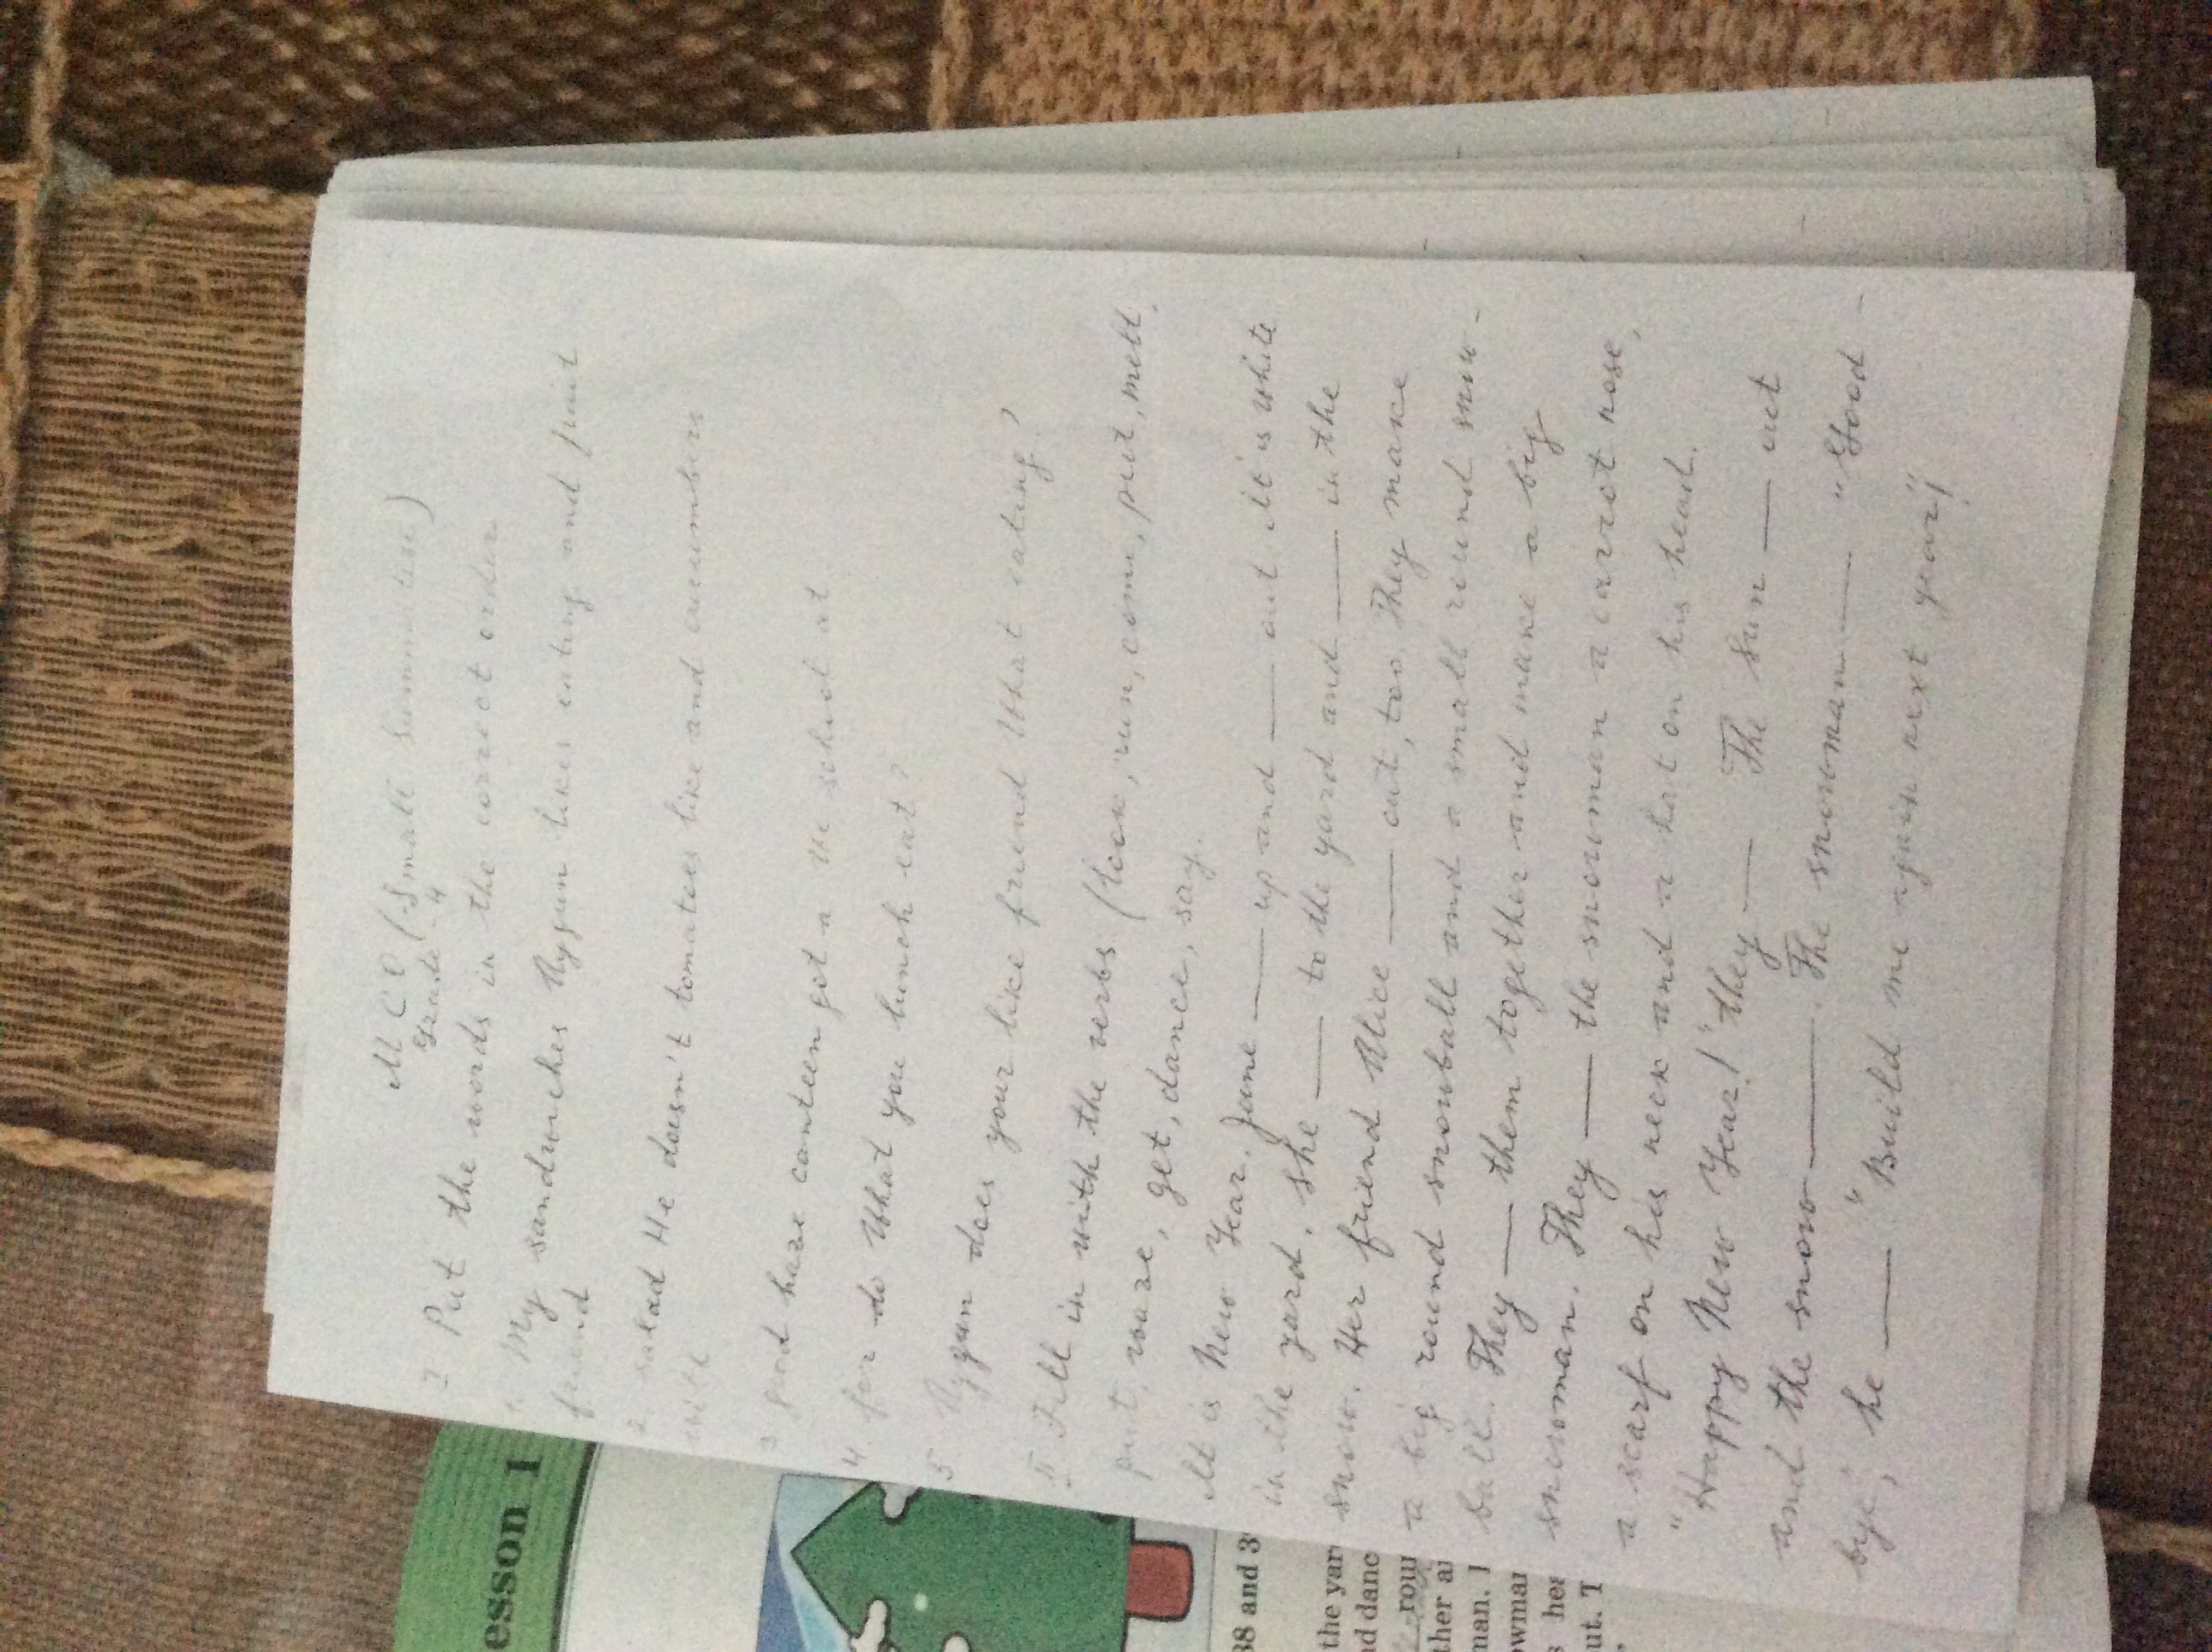 M C O (Small Summative)
Grade - 4
I Put the words in the correct order
1. My sandwiches Aygun likes eating and fruit
friend
2. salad He doesn't tomatoes like and cucumbers
with
3 good have canteen got a We school at
4. for do What you lunch eat?
5 Aygun does your like friend What eating?
II Fill in with the verbs (look, run, come, put, melt,
put, wake, get, dance, say.
It is New Year. Jane ___ up and ___ out. It is white
in the yard. she ___ to the yard and ___ in the
snow. Her friend Alice ___ out, too. They make
a big round snowball and a small round snow-
ball. They ___ them together and make a big
snowman. They ___ the snowman a carrot nose,
a scarf on his neck and a hat on his head.
"Happy New Year!" they ___ The sun ___ out
and the snow ___. The snowman ___ "Good-
bye", he ___ "Build me again next year!"
esson 1
38 and 3
the yar
nd danc
rou
ther a
man.
owma
s hea
ut. T